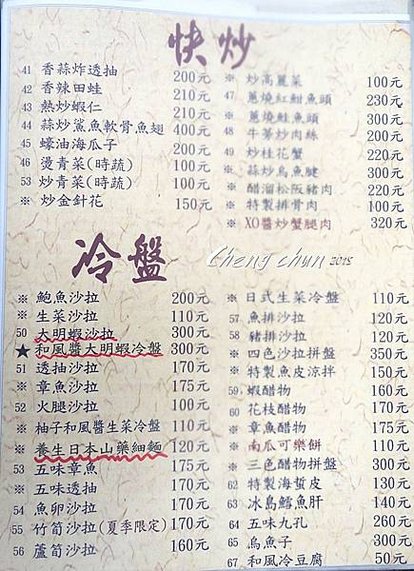 快炒
41 香蒜炸透抽 200元
42 香辣田蛙 210元
43 熱炒蝦仁 210元
44 蒜炒鯊魚軟骨魚翅 400元
45 蠔油海瓜子 200元
46 燙青菜(時蔬) 100元
53 炒青菜(時蔬) 100元
※ 炒金針花 150元
※ 炒高麗菜 100元
47 蔥燒紅魽魚頭 230元
※ 蔥燒鮭魚頭 300元
48 牛蒡炒肉絲 200元
49 炒桂花蟹 220元
※ 蒜炒烏魚腱 300元
※ 醋溜松阪豬肉 220元
※ 特製排骨肉 100元
※ XO醬炒蟹腿肉 320元
冷盤
Cheng chun 2018
※ 鮑魚沙拉 200元
※ 生菜沙拉 110元
50 大明蝦沙拉 300元
★ 和風醬大明蝦冷盤 300元
51 透抽沙拉 170元
※ 章魚沙拉 175元
52 火腿沙拉 100元
※ 柚子和風醬生菜冷盤 110元
※ 養生日本山藥細麵 120元
53 五味章魚 175元
※ 五味透抽 170元
54 魚卵沙拉 170元
55 竹筍沙拉(夏季限定) 170元
56 蘆筍沙拉 160元
※ 日式生菜冷盤 110元
57 魚排沙拉 120元
58 豬排沙拉 120元
※ 四色沙拉拼盤 350元
※ 特製魚皮涼拌 150元
59 蝦醋物 160元
60 花枝醋物 170元
※ 章魚醋物 175元
※ 南瓜可樂餅 110元
※ 三色醋物拼盤 300元
62 特製海蜇皮 130元
63 冰島鱈魚肝 140元
64 五味九孔 260元
65 烏魚子 300元
67 和風冷豆腐 50元